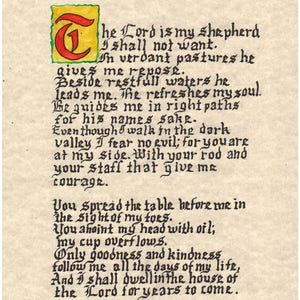 The Lord is my shepherd
I shall not want.
In verdant pastures he
gives me repose.
Beside restfull waters he
leads me. He refreshes my soul.
He guides me in right paths
for his names sake.
Even though I walk in the dark
valley I fear no evil; for you are
at my side. With your rod and
your staff that give me
courage.
You spread the table before me in
the sight of my toes.
You anoint my head with oil;
my cup overflows.
Only goodness and kindness
follow me all the days of my life,
And I shall dwell in the house of
the Lord for years to come.